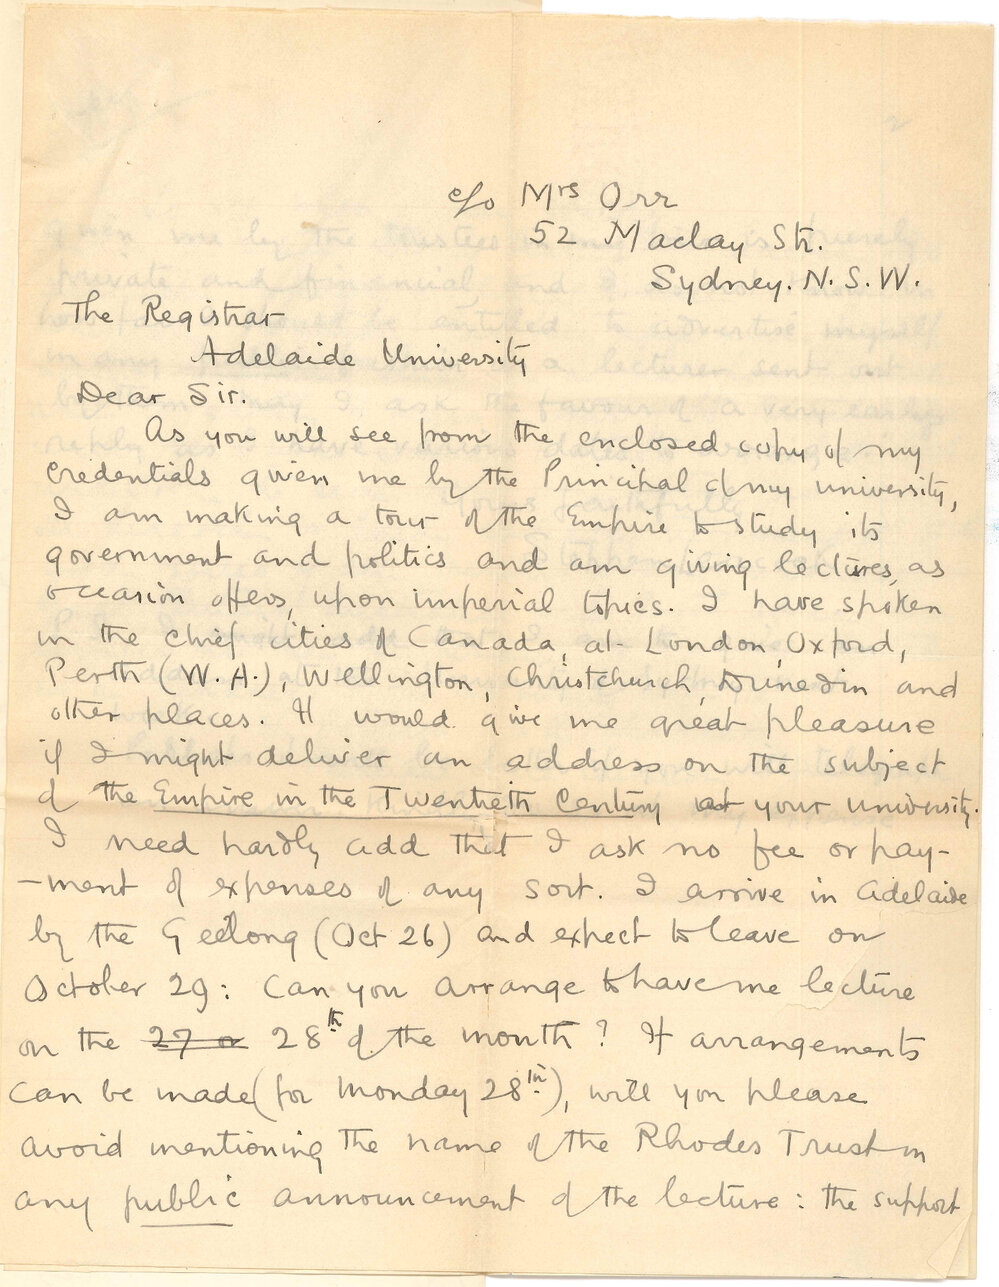 c/o Mrs Orr
52 Maclay Str.
Sydney. N. S. W.
The Registrar
Adelaide University
Dear Sir.
As you will see from the enclosed copy of my
credentials given me by the Principal of my university,
I am making a tour of the Empire to study its
government and politics and am giving lectures, as
occasion offers, upon imperial topics. I have spoken
in the chief cities of Canada, at London, Oxford,
Perth (W. A.), Wellington, Christchurch, Dunedin and
other places. It would give me great pleasure
if I might deliver an address on the subject
of the Empire in the Twentieth Century at your university.
I need hardly add that I ask no fee or pay-
-ment of expenses of any sort. I arrive in Adelaide
by the Geelong (Oct 26) and expect to leave on
October 29: Can you arrange to have me lecture
on the 27 or 28th of the month? If arrangements
can be made (for Monday 28th), will you please
avoid mentioning the name of the Rhodes Trust in
any public announcement of the lecture: the support